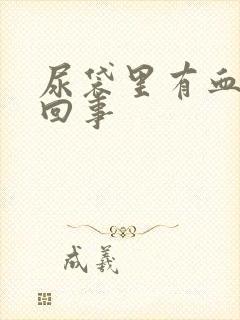 尿袋里有血
回事
成羲